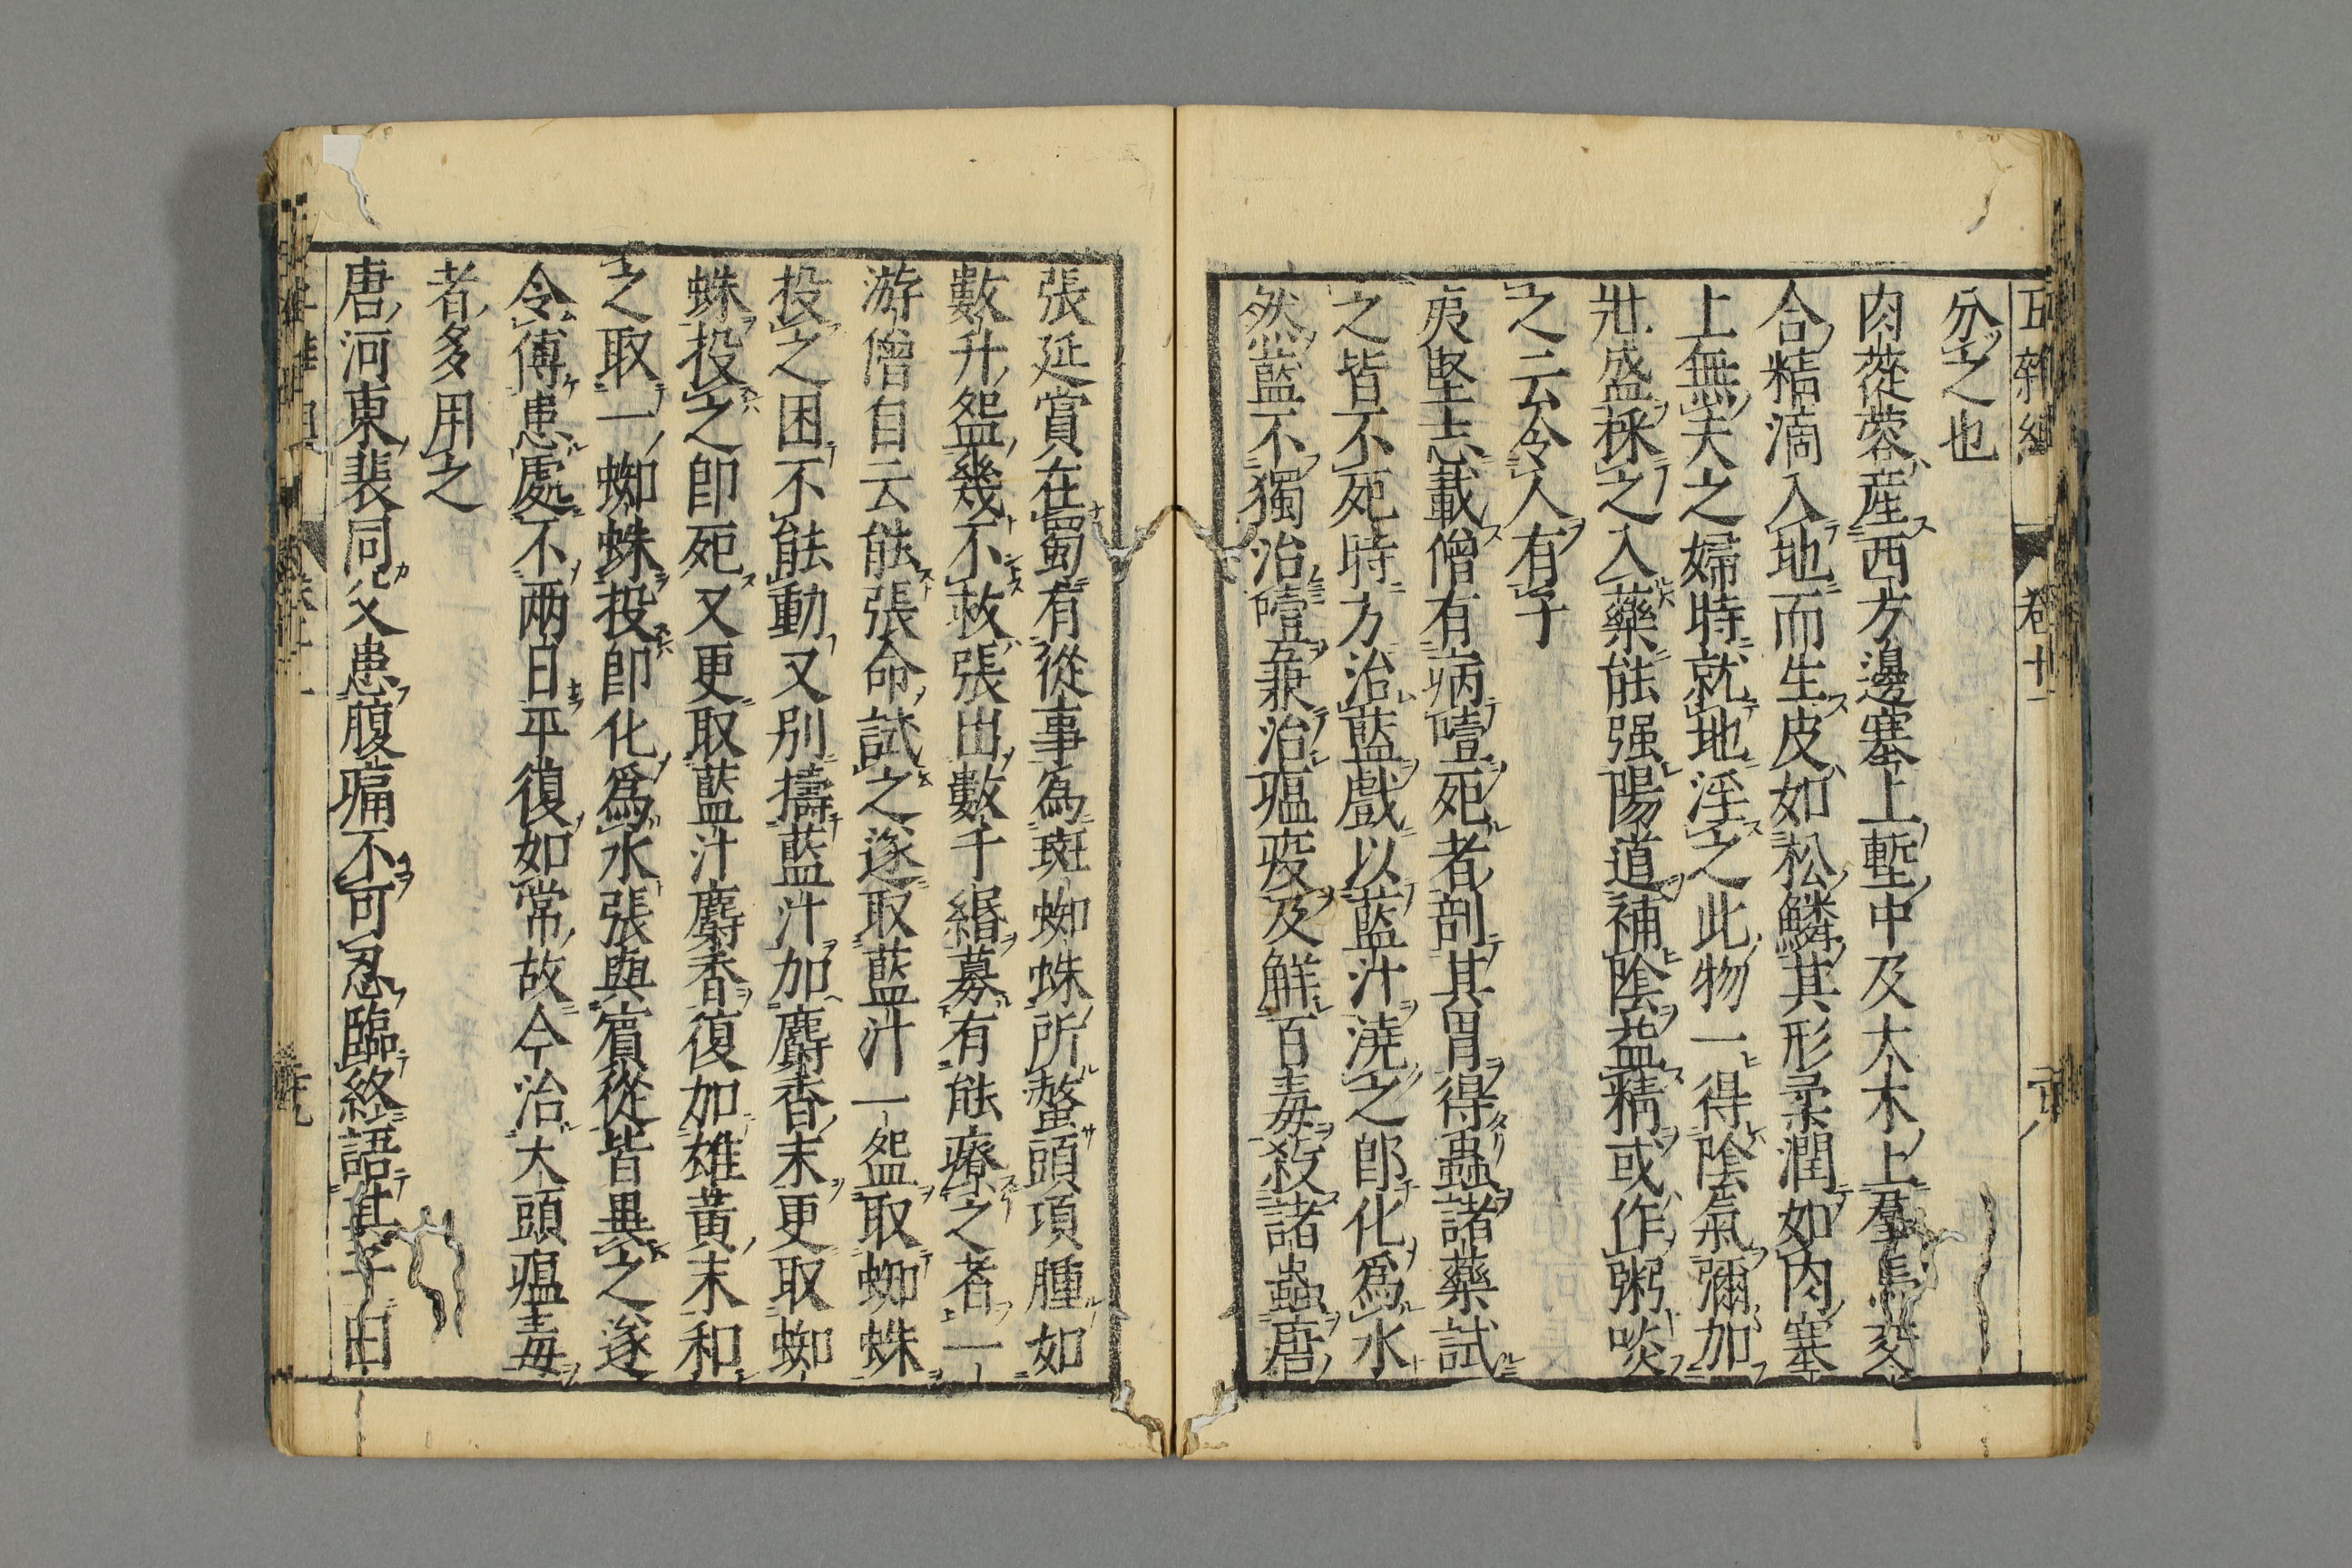 分之也
肉蓯蓉產西方邊塞上塹中及大木上羣馬交
合精滴入地而生皮如松鱗其形柔潤如肉塞
上無夫之婦時就地淫之此物一得陰氣彌加
壯盛採之入藥能强陽道補陰益精或作粥啖
之云令人有子
夷堅志載僧有病噎死者剖其胃得蟲諸藥試
之皆不死時方治藍戲以藍汁澆之即化爲水
然藍不獨治噎兼治瘟疫及解百毒殺諸蟲唐
張延賞在蜀有從事為斑蜘蛛所螫頭項腫如
數升盌幾不救張出數千緡募有能療之者一
游僧自云能張命試之遂取藍汁一盌取蜘蛛
投之困不能動又別擣藍汁加麝香末更取蜘
蛛投之卽死又更取藍汁麝香復加雄黃末和
之取一蜘蛛投卽化爲水張與賓從皆異之遂
令傅患處不两日平復如常故今治大頭瘟毒
者多用之
唐河東裴同父患腹痛不可忍臨終語其子曰
五雜組
卷十一